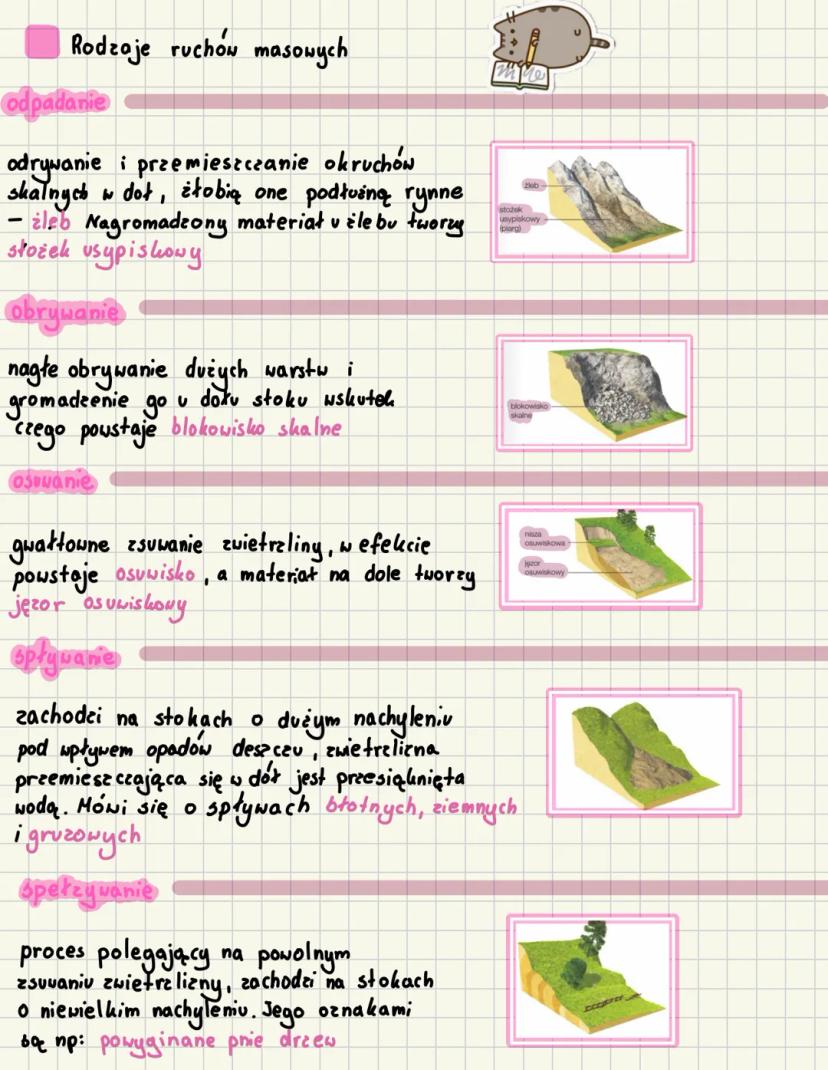 Rodzaje ruchów masowych
odpadanie
odrywanie i przemieszczanie okruchów
skalnych w dół, żłobią one podłużną rynne
– żleb Nagromadzony materiał u żlebu tworzy
stożek usypiskowy
żleb
stożek
usypiskowy
(piarg)
obrywanie
nagłe obrywanie dużych warstw i
gromadzenie go u dołu stoku wskutek
czego powstaje blokowisko skalne
blokowisko
skalne
osuwanie
gwałtowne zsuwanie zwietrzliny, w efekcie
powstaje osuwisko, a materiał na dole tworzy
jęzor osuwiskowy
nisza
osuwiskowa
jęzor
osuwiskowy
spływanie
zachodzi na stokach o dużym nachyleniu
pod wpływem opadów deszczu, zwietrzlizna
przemieszczająca się w dół jest przesiąknięta
wodą. Mówi się o spływach błotnych, ziemnych
i gruzowych
spełzywanie
proces polegający na powolnym
zsuwaniu zwietrzlizny, zachodzi na stokach
o niewielkim nachyleniu. Jego oznakami
są np: powyginane pnie drzew